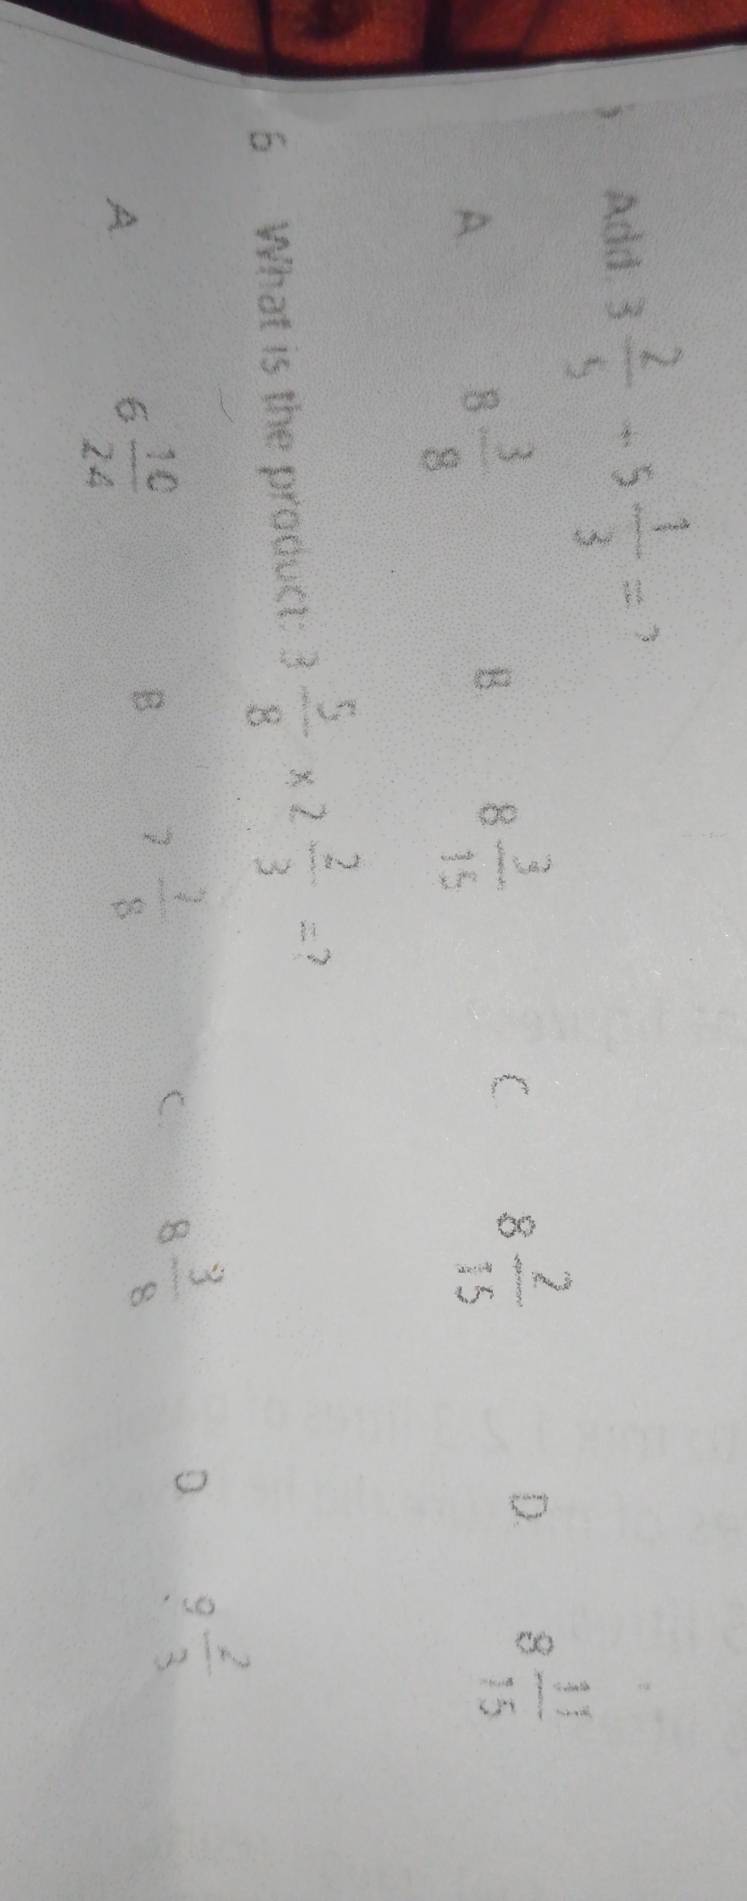 Add. 3 2/5 + 5 1/3 = ?
A 8 3/8 B 8 3/15 C 8 2/15 D 8 11/15
6 What is the product: 3 5/8 x 2 2/3 = ?
A 6 10/24 B 7 7/8 C 8 3/8 D 9 2/3